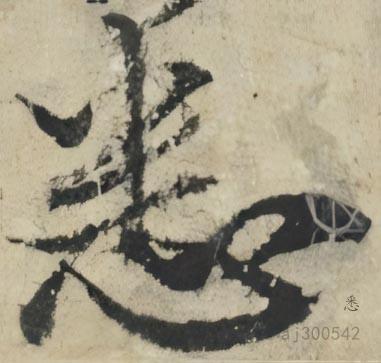 悉
悉
aj300542